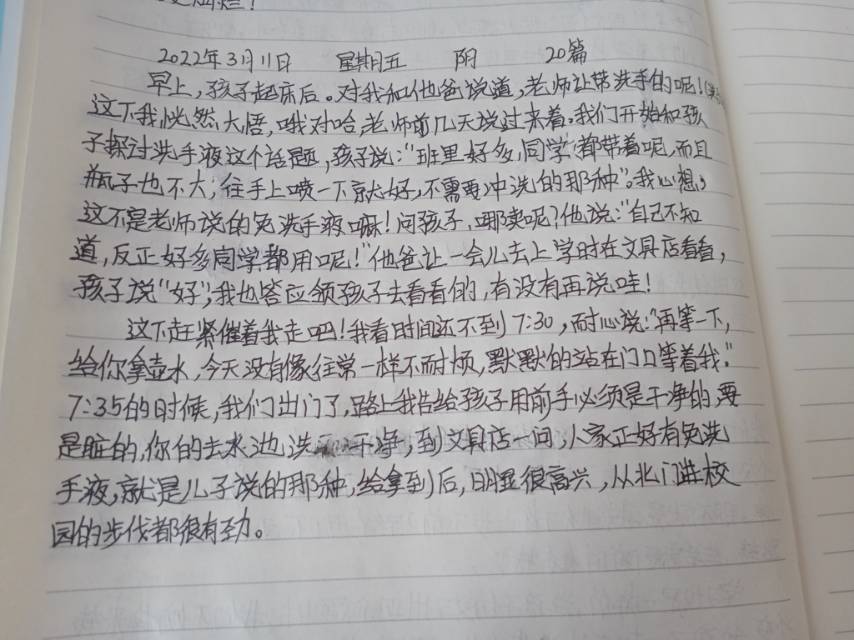 更灿烂！
2022年3月11日 星期五 阴 20篇
早上，孩子起床后。对我和他爸说道，老师让带洗手的呢！
这下我恍然大悟，哦对哈，老师前几天说过来着。我们开始和孩
子探讨洗手液这个话题，孩子说："班里好多同学都带着呢，而且
瓶子也不大，往手上喷一下就好，不需要冲洗的那种"。我心想，
这不是老师说的免洗手液嘛！问孩子，哪卖呢？他说："自己不知
道，反正好多同学都用呢！"他爸让一会儿去上学时在文具店看看，
孩子说"好"，我也答应领孩子去看看的，有没有再说哇！
这下赶紧催着我走吧！我看时间还不到7:30，耐心说："再等一下，
给你拿壶水，今天没有像往常一样不耐烦，默默的站在门口等着我。"
7:35的时候，我们出门了，路上我告给孩子用前手必须是干净的，要
是脏的，你的去水池边洗干净，到文具店一问，人家正好有免洗
手液，就是儿子说的那种，给拿到后，明显很高兴，从北门进校
园的步伐都很有劲。